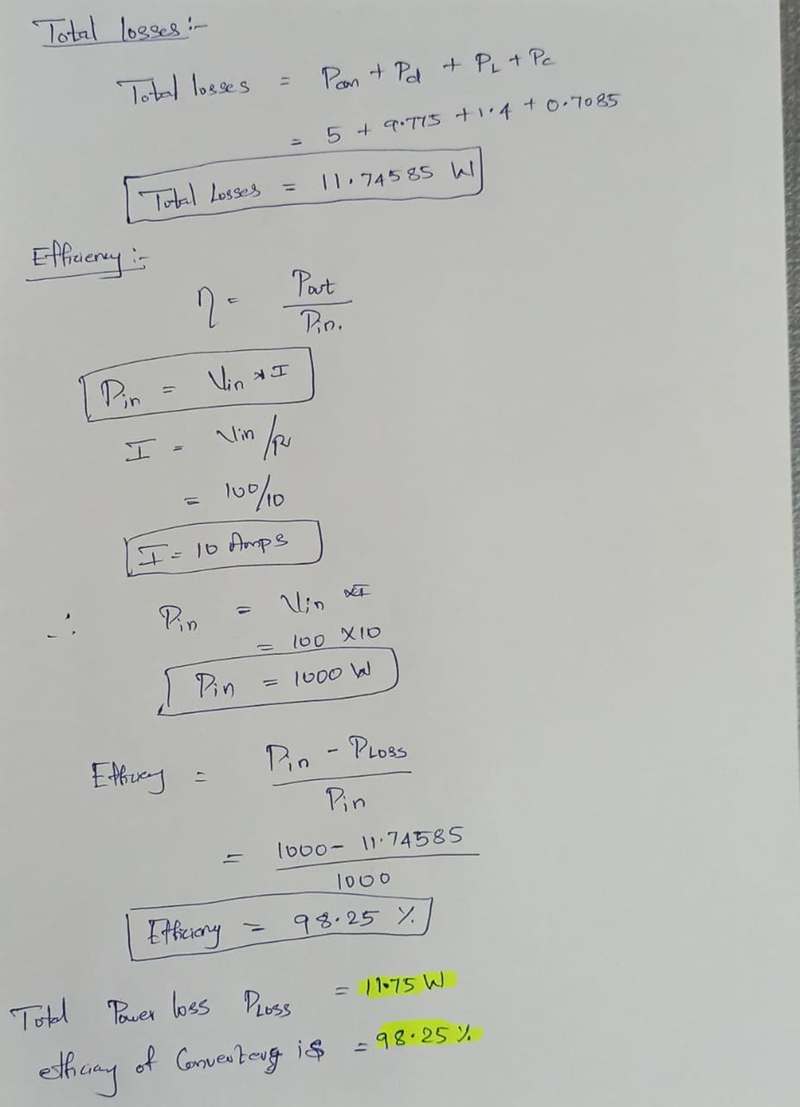 Total losses :-
Total losses = Pcon + Pd + PL + Pc
= 5 + 9.775 + 1.4 + 0.7085
Total Losses = 11.74585 W
Efficiency :-
η = Pout / Pin.
Pin = Vin * I
I = Vin/R
= 100/10
I = 10 Amps
∴ Pin = Vin × I
= 100 × 10
Pin = 1000 W
= Pin - PLoss / Pin
= 1000 - 11.74585 / 1000
= 98.25 %
Total Power loss PLoss = 11.75 W
of is = 98.25 %